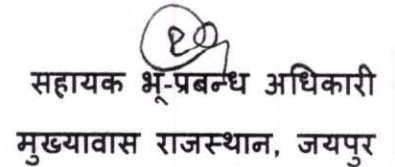 सहायक भू-प्रबन्ध अधिकारी
मुख्यावास राजस्थान, जयपुर